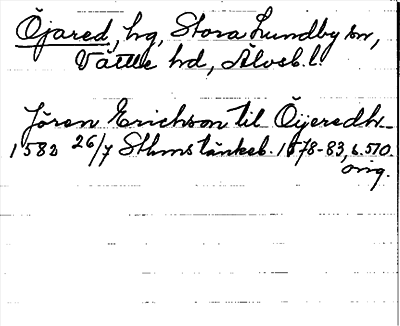 Öjared, hg, Stora Lundby sn,
Vättle hd, Älvsb. l.
Jören Erichson til Öijeredh.
1582 26/7 Sthms tänkeb. 1578-83, s. 510.
orig.